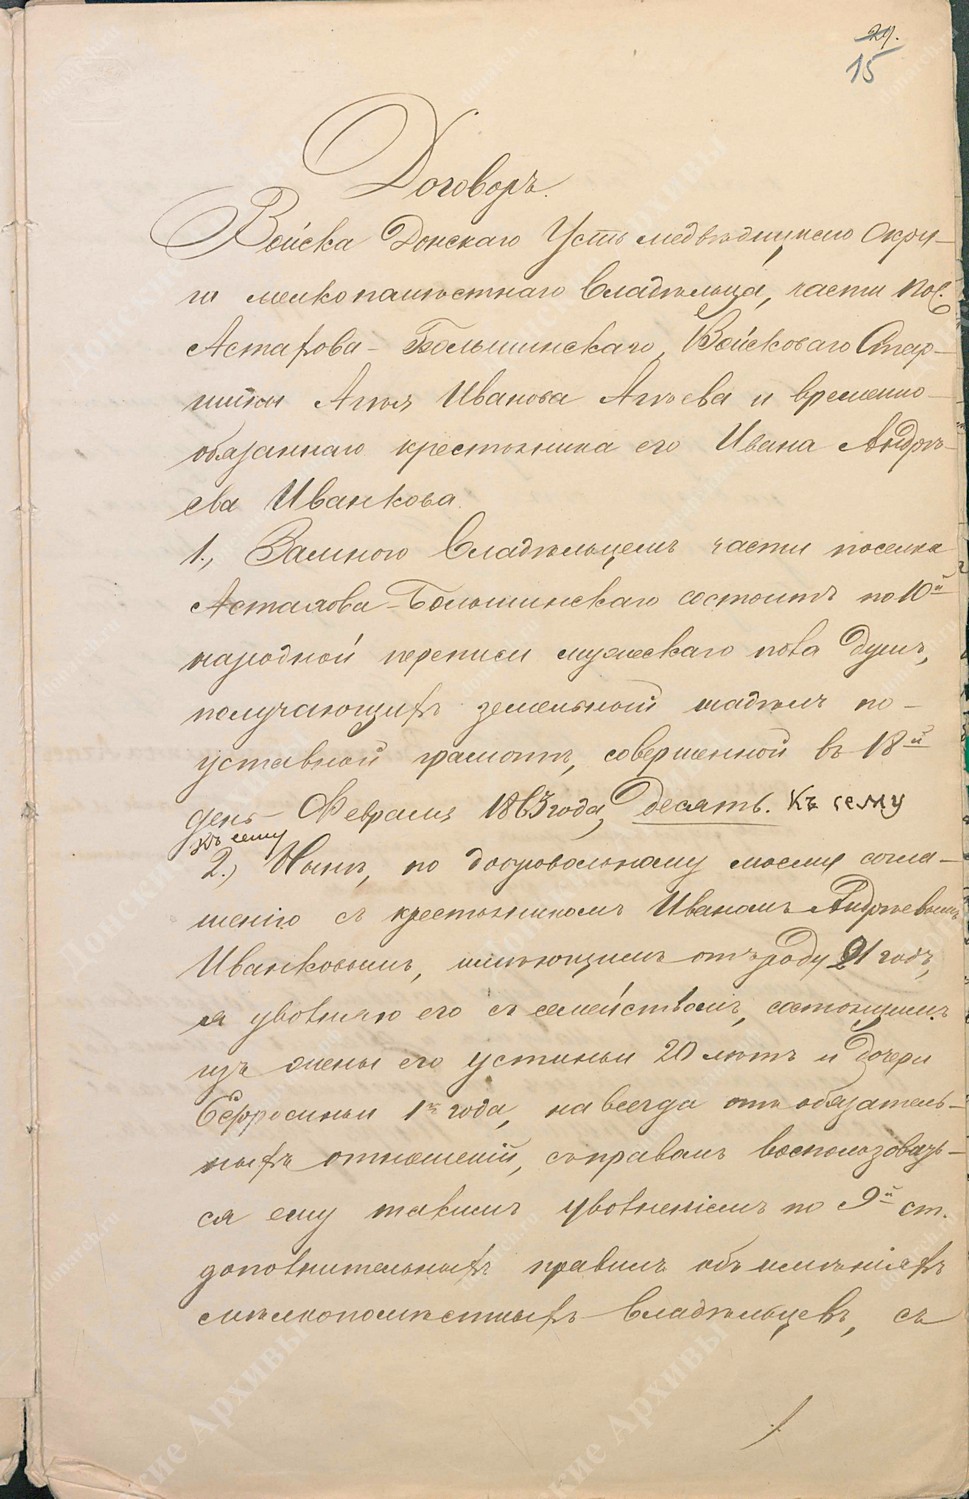 29.
15
Договоръ.
Войска Донскаго Усть медвѣдицкаго Окру-
га мелкопомѣстнаго Владѣльца, части пос.
Астахова-Большинскаго, Войсковаго Стар-
шины Агѣя Иванова Агѣева и временно-
обязаннаго крестьянина его Ивана Андрѣ-
ева Иванкова.
1., За мною Владѣльцемъ части поселка
Астахова-Большинскаго состоитъ по 10й
народной переписи мужескаго пола душъ,
получающихъ земельной надѣлъ по-
уставной грамотѣ, совершенной въ 18й
день Февраля 1863 года, десять. къ сему
къ сему
2.) Нынѣ, по добровольному моему согла-
шенію съ крестьяниномъ Иваномъ Андрѣевымъ
Иванковымъ, имѣющимъ отъ роду 21 годъ,
я увольняю его съ семействомъ, состоящимъ
изъ жены его Устиньи 20 лѣтъ и дочери
Ефросиньи 1го года, навсегда отъ обязатель-
ныхъ отношеній, съ правомъ воспользовать-
ся ему такимъ увольненіемъ по 9й ст.
дополнительныхъ правилъ объ имѣніяхъ
мѣлкопомѣстныхъ Владѣльцевъ, съ